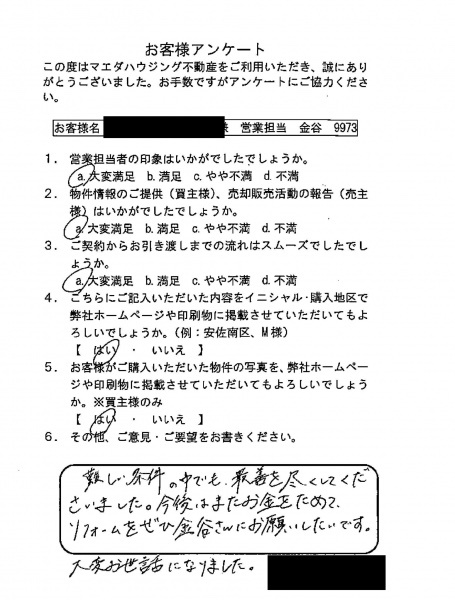 お客様アンケート
この度はマエダハウジング不動産をご利用いただき、誠にあり
がとうございました。お手数ですがアンケートにご協力くださ
い。
お客様名 様 営業担当 金谷 9973
1. 営業担当者の印象はいかがでしたでしょうか。
a.大変満足 b.満足 c.やや不満 d.不満
2. 物件情報のご提供（買主様）、売却販売活動の報告（売主
様）はいかがでしたでしょうか。
a.大変満足 b.満足 c.やや不満 d.不満
3. ご契約からお引き渡しまでの流れはスムーズでしたでし
ょうか。
a.大変満足 b.満足 c.やや不満 d.不満
4. こちらにご記入いただいた内容をイニシャル・購入地区で
弊社ホームページや印刷物に掲載させていただいてもよ
ろしいでしょうか。（例：安佐南区、M様）
【 はい ・ いいえ 】
5. お客様がご購入いただいた物件の写真を、弊社ホームペー
ジや印刷物に掲載させていただいてもよろしいでしょう
か。※買主様のみ
【 はい ・ いいえ 】
6. その他、ご意見・ご要望をお書きください。
難しい条件の中でも、最善を尽くしてくだ
さいました。今後はまたお金をためて、
リフォームをぜひ金谷さんにお願いしたいです。
大変お世話になりました。